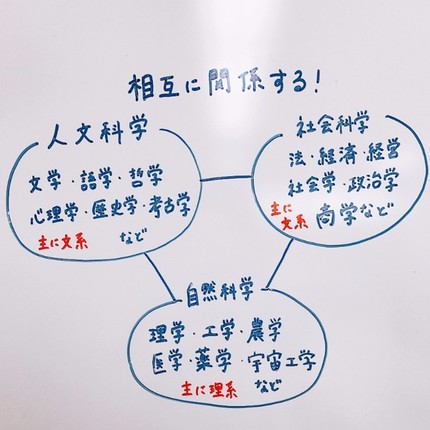 相互に関係する!
人文科学
文学・語学・哲学
心理学・歴史学・考古学
主に文系 など
社会科学
法・経済・経営
社会学・政治学
主に文系 商学など
自然科学
理学・工学・農学
医学・薬学・宇宙工学
主に理系 など